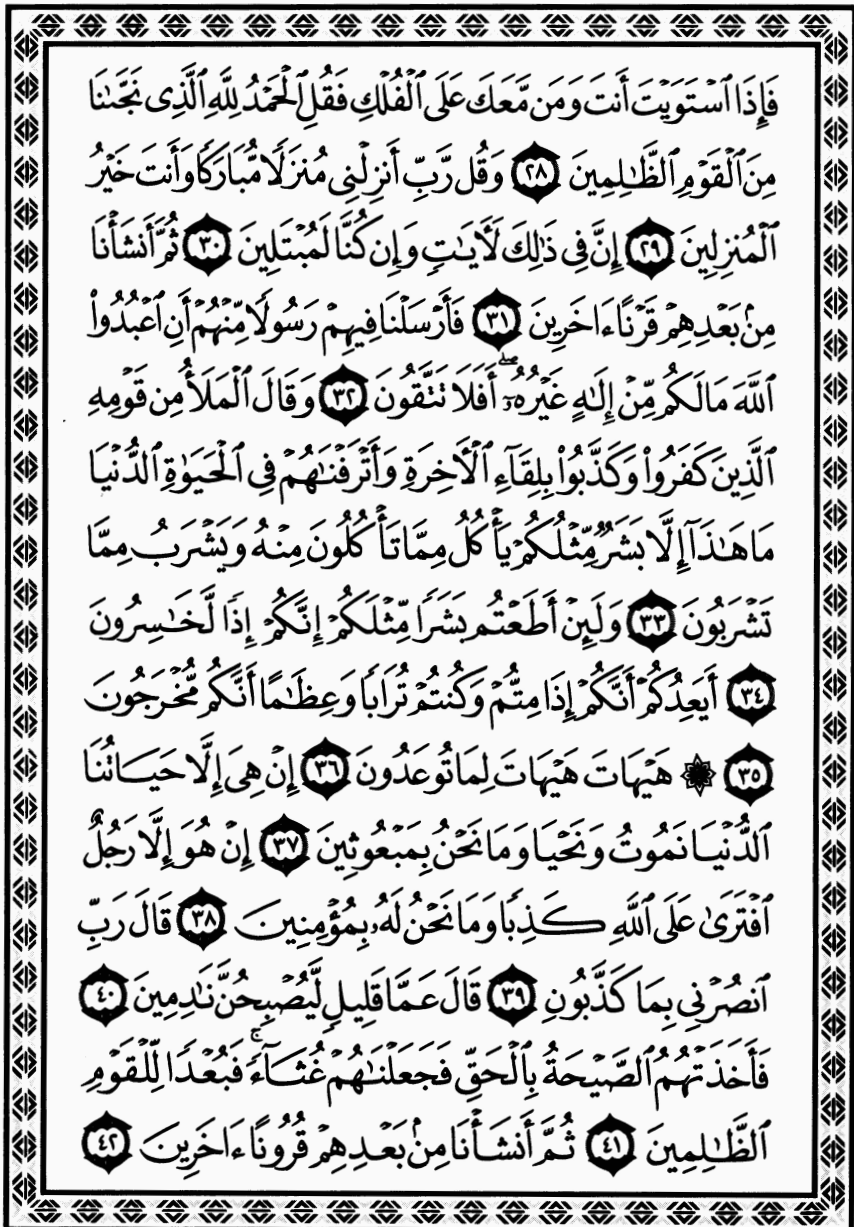 فَإِذَا ٱسْتَوَيْتَ أَنتَ وَمَن مَّعَكَ عَلَى ٱلْفُلْكِ فَقُلِ ٱلْحَمْدُ لِلَّهِ ٱلَّذِى نَجَّىٰنَا
مِنَ ٱلْقَوْمِ ٱلظَّـٰلِمِينَ ٢٨ وَقُل رَّبِّ أَنزِلْنِى مُنزَلًا مُّبَارَكًا وَأَنتَ خَيْرُ
ٱلْمُنزِلِينَ ٢٩ إِنَّ فِى ذَٰلِكَ لَـَٔايَـٰتٍ وَإِن كُنَّا لَمُبْتَلِينَ ٣٠ ثُمَّ أَنشَأْنَا
مِنۢ بَعْدِهِمْ قَرْنًا ءَاخَرِينَ ٣١ فَأَرْسَلْنَا فِيهِمْ رَسُولًا مِّنْهُمْ أَنِ ٱعْبُدُوا۟
ٱللَّهَ مَا لَكُم مِّنْ إِلَـٰهٍ غَيْرُهُۥٓ ۖ أَفَلَا تَتَّقُونَ ٣٢ وَقَالَ ٱلْمَلَأُ مِن قَوْمِهِ
ٱلَّذِينَ كَفَرُوا۟ وَكَذَّبُوا۟ بِلِقَآءِ ٱلْـَٔاخِرَةِ وَأَتْرَفْنَـٰهُمْ فِى ٱلْحَيَوٰةِ ٱلدُّنْيَا
مَا هَـٰذَآ إِلَّا بَشَرٌ مِّثْلُكُمْ يَأْكُلُ مِمَّا تَأْكُلُونَ مِنْهُ وَيَشْرَبُ مِمَّا
تَشْرَبُونَ ٣٣ وَلَئِنْ أَطَعْتُم بَشَرًا مِّثْلَكُمْ إِنَّكُمْ إِذًا لَّخَـٰسِرُونَ
٣٤ أَيَعِدُكُمْ أَنَّكُمْ إِذَا مِتُّمْ وَكُنتُمْ تُرَابًا وَعِظَـٰمًا أَنَّكُم مُّخْرَجُونَ
٣٥ ۞ هَيْهَاتَ هَيْهَاتَ لِمَا تُوعَدُونَ ٣٦ إِنْ هِىَ إِلَّا حَيَاتُنَا
ٱلدُّنْيَا نَمُوتُ وَنَحْيَا وَمَا نَحْنُ بِمَبْعُوثِينَ ٣٧ إِنْ هُوَ إِلَّا رَجُلٌ
ٱفْتَرَىٰ عَلَى ٱللَّهِ كَذِبًا وَمَا نَحْنُ لَهُۥ بِمُؤْمِنِينَ ٣٨ قَالَ رَبِّ
ٱنصُرْنِى بِمَا كَذَّبُونِ ٣٩ قَالَ عَمَّا قَلِيلٍ لَّيُصْبِحُنَّ نَـٰدِمِينَ ٤٠
فَأَخَذَتْهُمُ ٱلصَّيْحَةُ بِٱلْحَقِّ فَجَعَلْنَـٰهُمْ غُثَآءً ۚ فَبُعْدًا لِّلْقَوْمِ
ٱلظَّـٰلِمِينَ ٤١ ثُمَّ أَنشَأْنَا مِنۢ بَعْدِهِمْ قُرُونًا ءَاخَرِينَ ٤٢